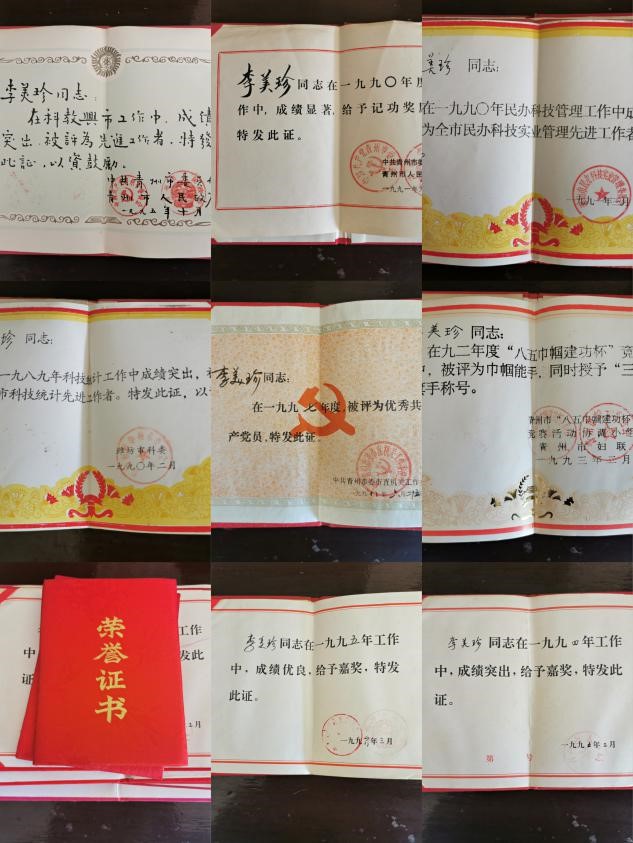 李美珍同志:
在科教興市工作中,成績
突出,被評為先進工作者,特發
此证,以資鼓励。
中共青州市委
青州市人民政府
一九九五年十月
李美珍同志在一九九〇年度
作中,成绩显著,给予记功奖
特发此证。
中共青州市委
青州市人民
一九九一年
美珍 同志:
在一九九〇年民办科技管理工作中成
为全市民办科技实业管理先进工作者
一九九一年三月
珍 同志:
一九八九年科技统计工作中成绩突出,
市科技统计先进工作者。特发此证,以
潍坊市科委
一九九〇年二月
李美珍同志:
在一九九七年度,被评为优秀共
产党员,特发此证。
中共青州市委市直机关工作
美珍 同志:
在九二年度“八五巾帼建功杯”竞
,被评为巾帼能手,同时授予“三
手称号。
青州市“八五巾帼建功杯”
竞赛活动协调小组
青州市妇联
一九九三年三月
荣誉证书
中
证
月
李美珍同志在一九九五年工作
中,成绩优良,给予嘉奖,特发
此证。
一九九六年三月
李美珍同志在一九九四年工作
中,成绩突出,给予嘉奖,特发此
证。
一九九五年三月
第 号